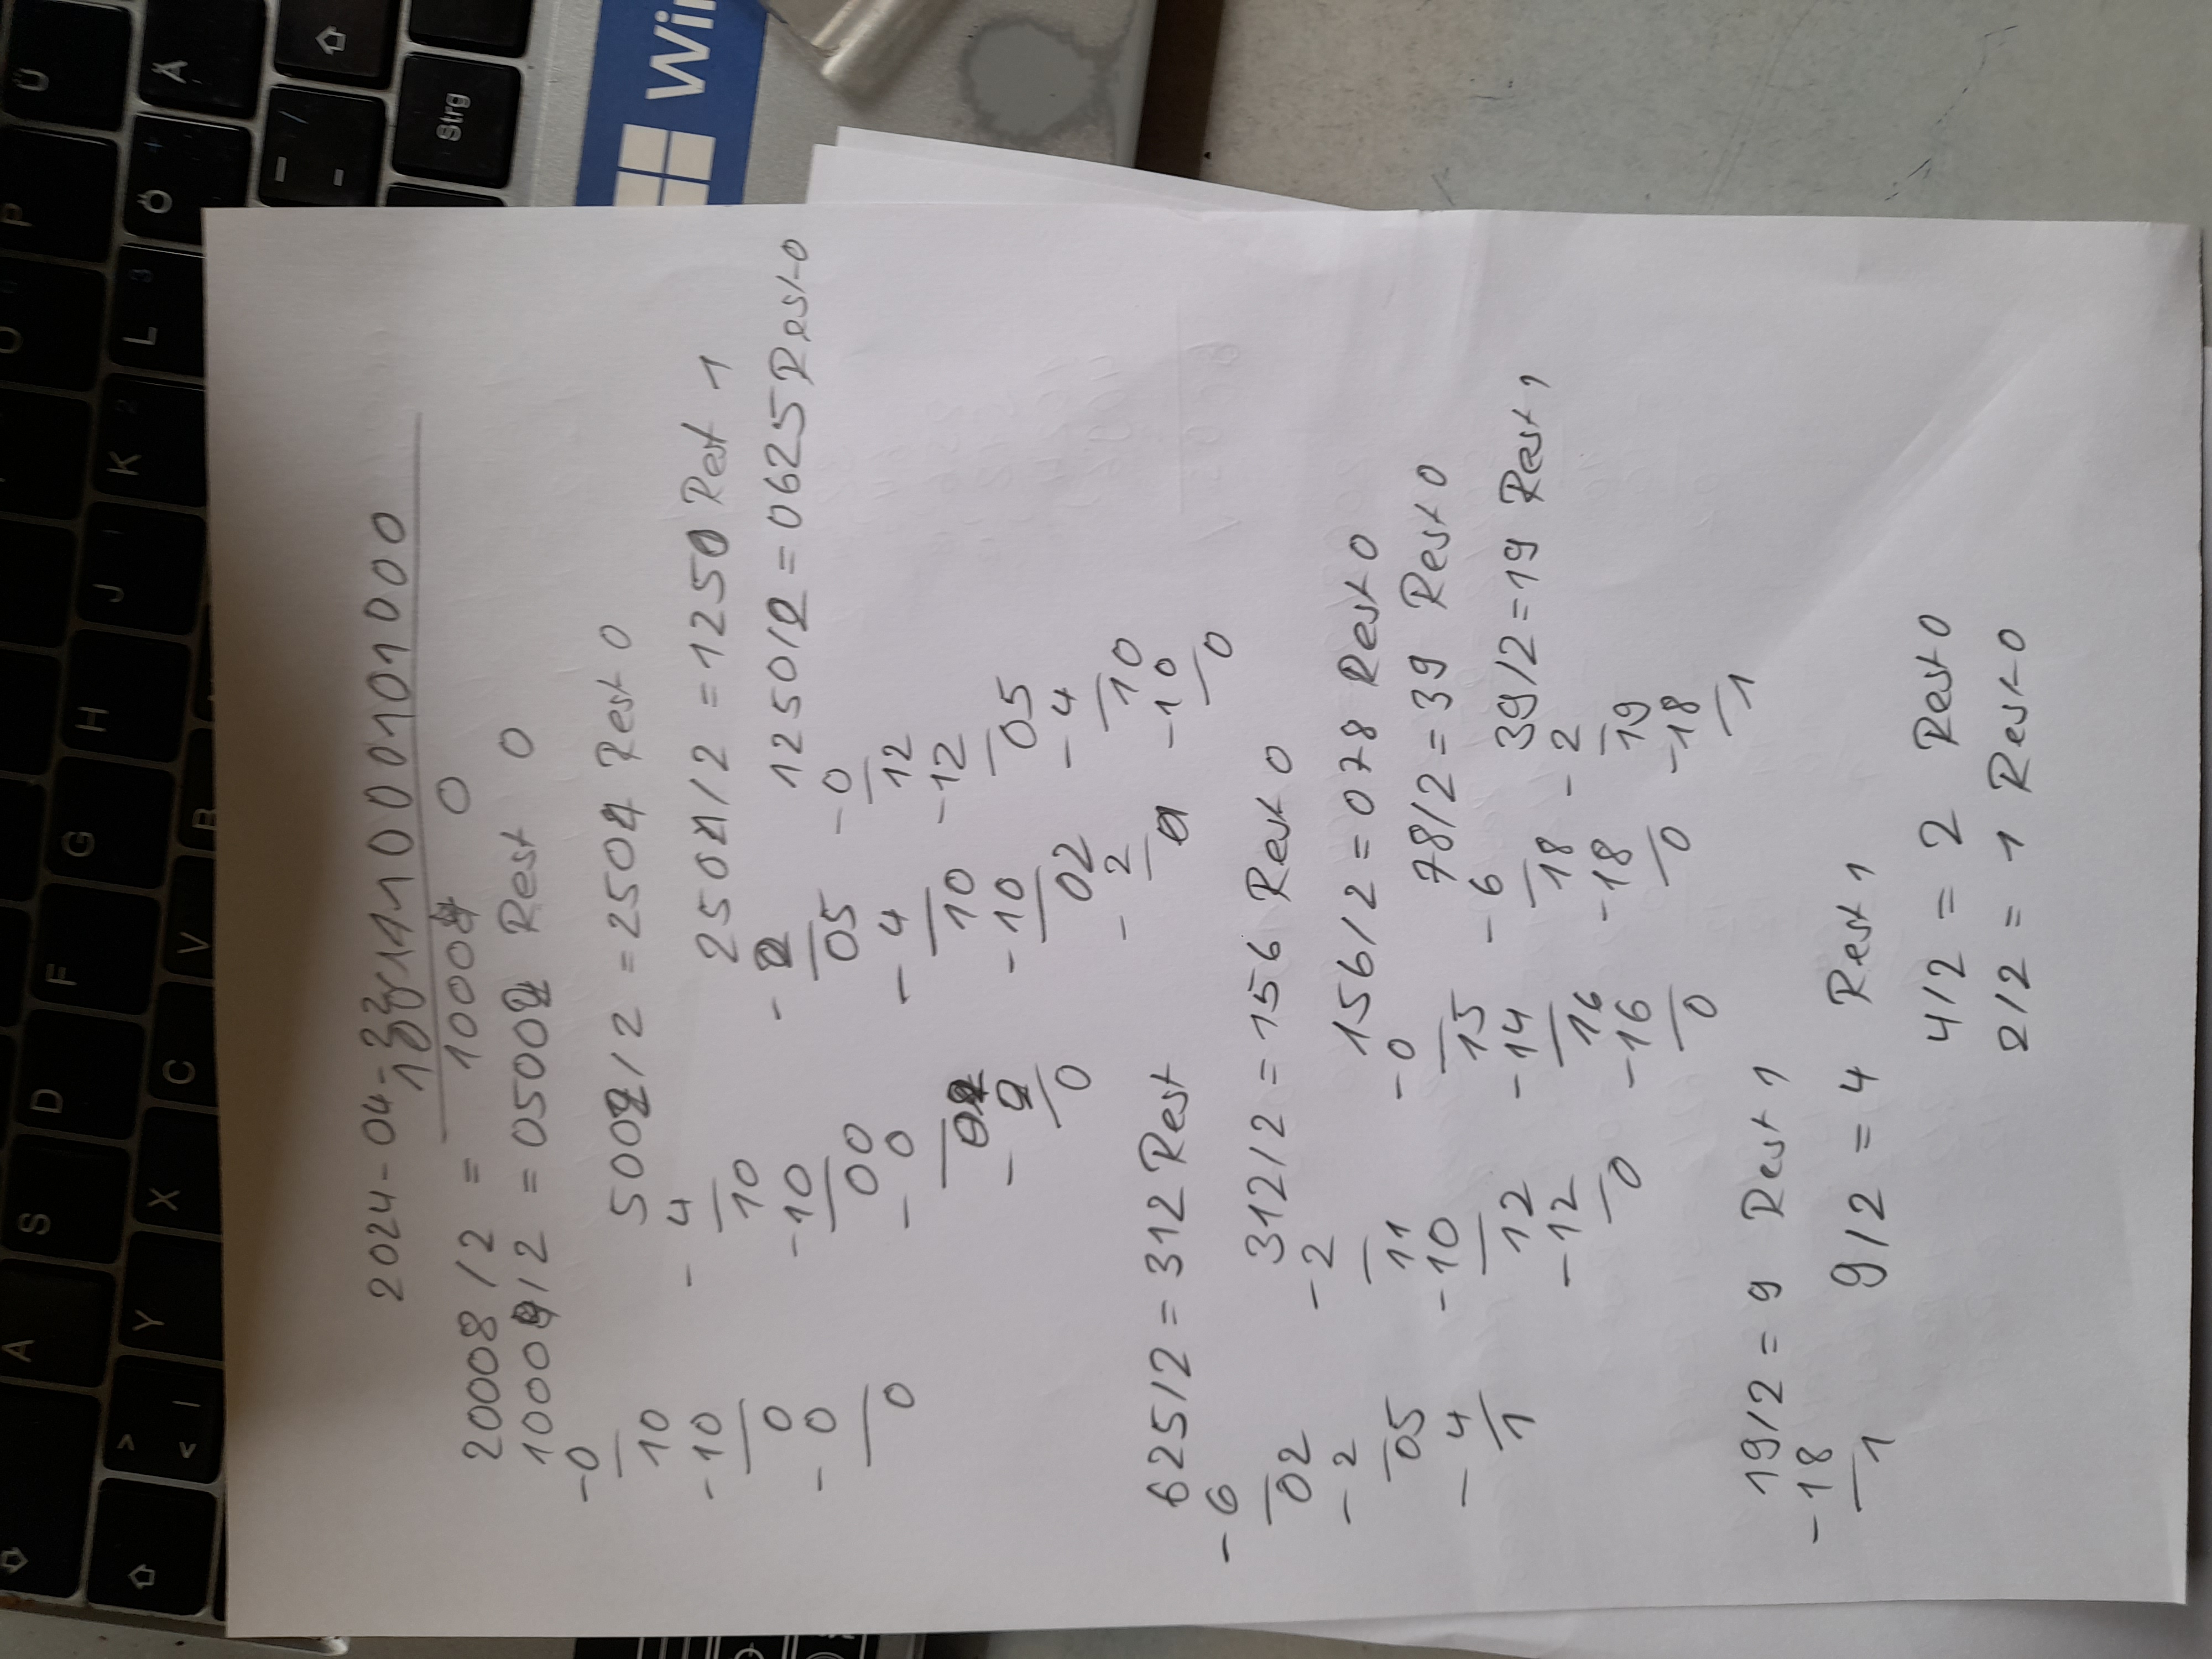 A S D F G H J K L Ö Ä
P Ü
> < | Y X C V B
Strg
Win
2024-04-22
100111000101000
20008/2 = 10004 0
10004/2 = 05002 Rest 0
-0
10
-10
0
-0
0
5002/2 = 2501 Rest 0
-4
10
-10
00
-0
02
-2
0
2501/2 = 1250 Rest 1
-2
05
-4
10
-10
02
-2
1250/2 = 0625 Rest 0
-0
12
-12
05
-4
10
-10
0
625/2 = 312 Rest
-6
02
-2
05
-4
1
312/2 = 156 Rest 0
-2
11
-10
12
-12
0
156/2 = 078 Rest 0
-0
15
-14
16
-16
0
78/2 = 39 Rest 0
-6
18
-18
0
39/2 = 19 Rest 1
-2
19
-18
1
19/2 = 9 Rest 1
-18
1
9/2 = 4 Rest 1
4/2 = 2 Rest 0
2/2 = 1 Rest 0